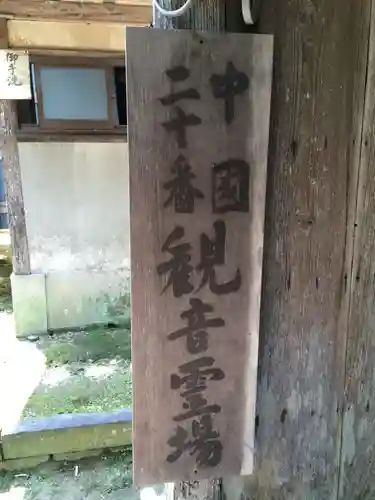 中国
二十番
観音霊場
御手洗